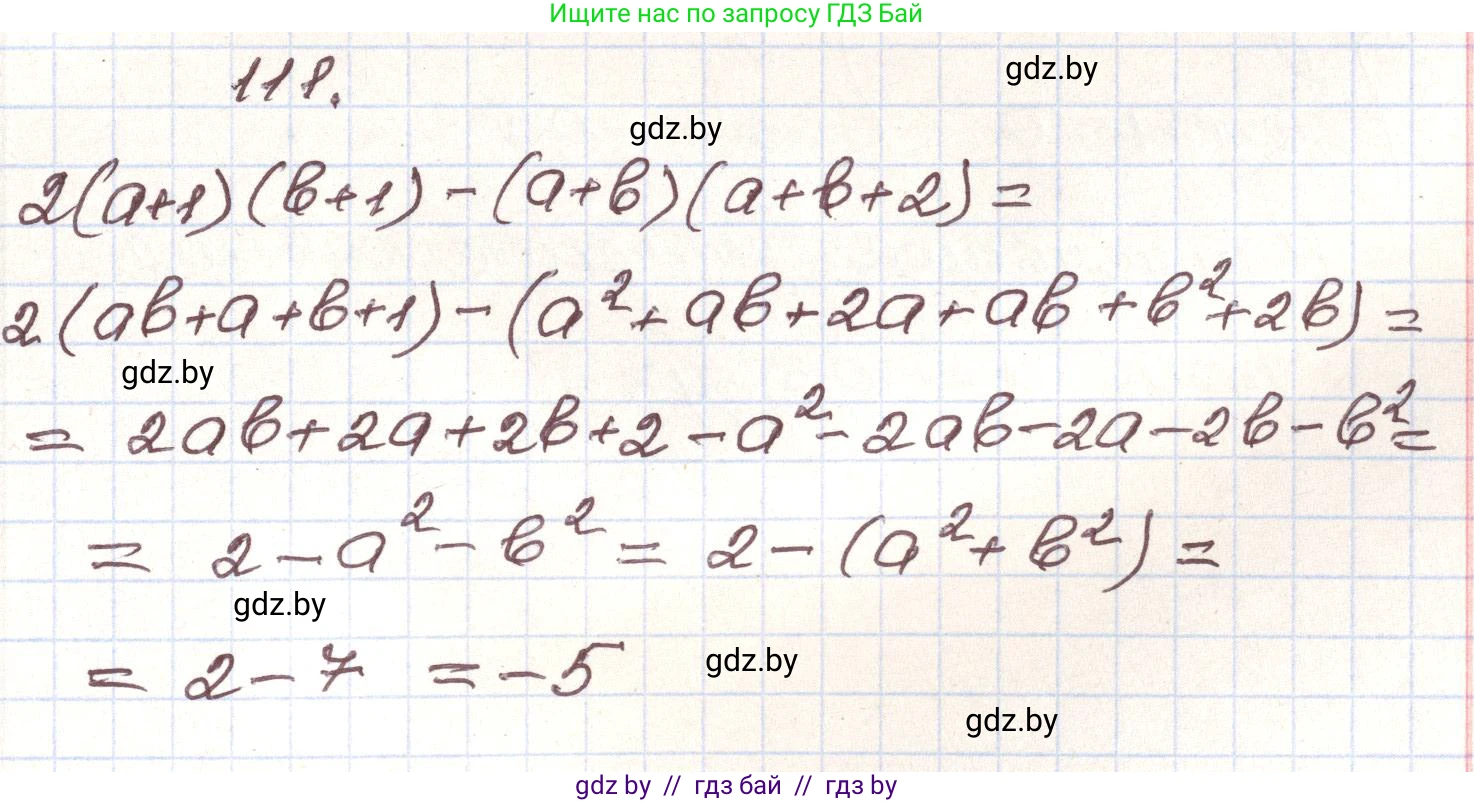 Ищите нас по запросу ГДЗ Бай
118.
gdz.by
gdz.by
2(a+1)(b+1)-(a+b)(a+b+2)=
2(ab+a+b+1)-(a²+ab+2a+ab+b²+2b)=
gdz.by
= 2ab+2a+2b+2-a²-2ab-2a-2b-b²=
= 2-a²-b²= 2-(a²+b²)=
gdz.by
= 2-7 =-5
gdz.by
gdz.by
gdz by // гдз бай // гдз by